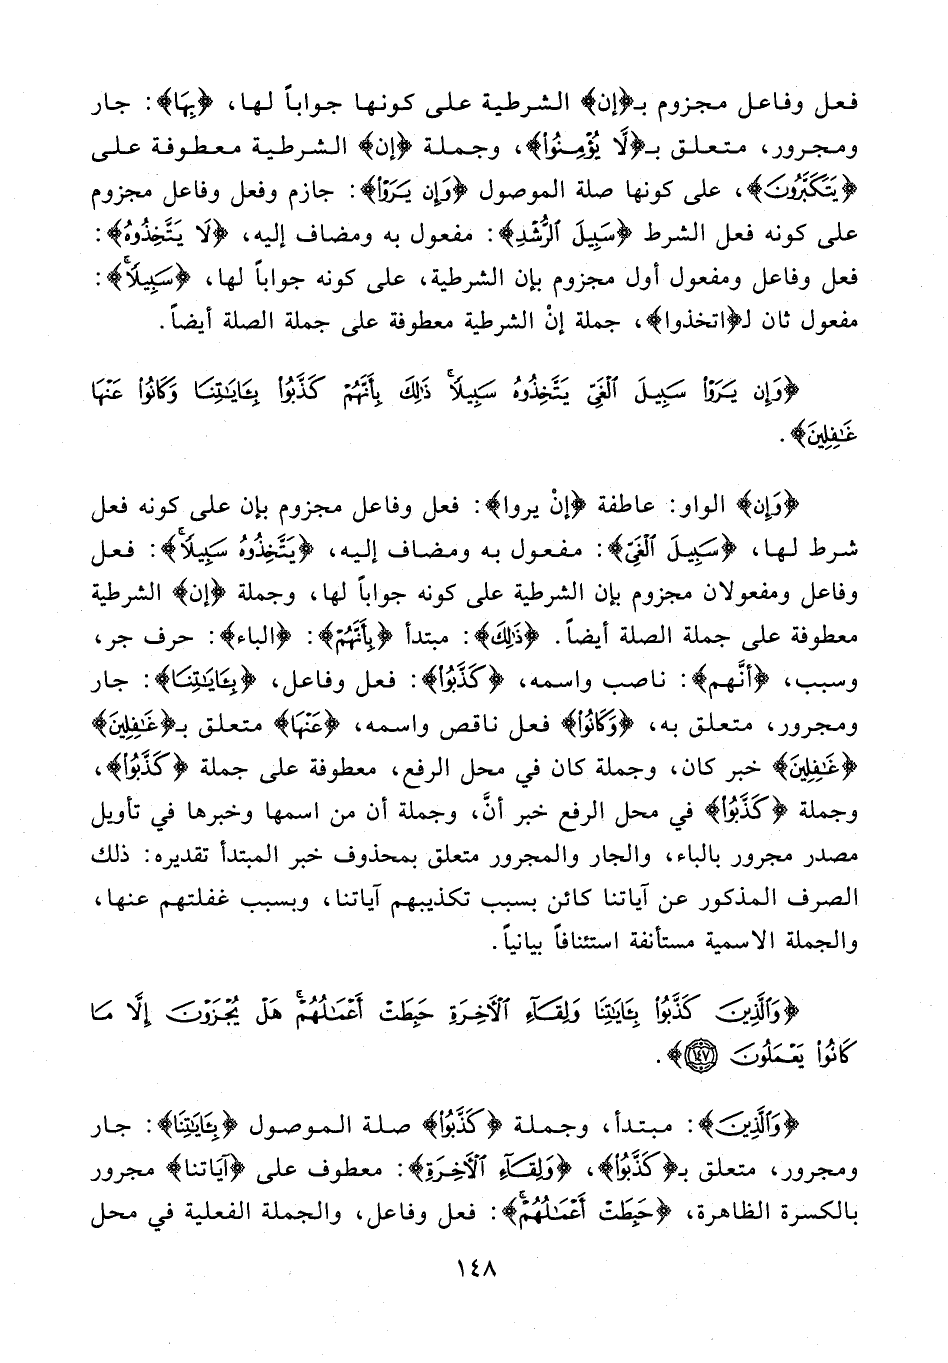 فعل وفاعل مجزوم بـ﴿إن﴾ الشرطية على كونها جواباً لها، ﴿بِهَا﴾: جار
ومجرور، متعلق بـ﴿لَّا يُؤْمِنُوا۟﴾، وجملة ﴿إن﴾ الشرطية معطوفة على
﴿يَتَكَبَّرُونَ﴾، على كونها صلة الموصول ﴿وَإِن يَرَوْا۟﴾: جازم وفعل وفاعل مجزوم
على كونه فعل الشرط ﴿سَبِيلَ ٱلرُّشْدِ﴾: مفعول به ومضاف إليه، ﴿لَا يَتَّخِذُوهُ﴾:
فعل وفاعل ومفعول أول مجزوم بإن الشرطية، على كونه جواباً لها، ﴿سَبِيلًا ۚ﴾:
مفعول ثان لـ﴿اتخذوا﴾، جملة إنْ الشرطية معطوفة على جملة الصلة أيضاً.
﴿وَإِن يَرَوْا۟ سَبِيلَ ٱلْغَىِّ يَتَّخِذُوهُ سَبِيلًا ۚ ذَٰلِكَ بِأَنَّهُمْ كَذَّبُوا۟ بِـَٔايَـٰتِنَا وَكَانُوا۟ عَنْهَا
غَـٰفِلِينَ﴾.
﴿وَإِن﴾ الواو: عاطفة ﴿إنْ يروا﴾: فعل وفاعل مجزوم بإن على كونه فعل
شرط لها، ﴿سَبِيلَ ٱلْغَىِّ﴾: مفعول به ومضاف إليه، ﴿يَتَّخِذُوهُ سَبِيلًا ۚ﴾: فعل
وفاعل ومفعولان مجزوم بإن الشرطية على كونه جواباً لها، وجملة ﴿إن﴾ الشرطية
معطوفة على جملة الصلة أيضاً. ﴿ذَٰلِكَ﴾: مبتدأ ﴿بِأَنَّهُمْ﴾: ﴿الباء﴾: حرف جر،
وسبب، ﴿أنَّهم﴾: ناصب واسمه، ﴿كَذَّبُوا۟﴾: فعل وفاعل، ﴿بِـَٔايَـٰتِنَا﴾: جار
ومجرور، متعلق به، ﴿وَكَانُوا۟﴾ فعل ناقص واسمه، ﴿عَنْهَا﴾ متعلق بـ﴿غَـٰفِلِينَ﴾
﴿غَـٰفِلِينَ﴾ خبر كان، وجملة كان في محل الرفع، معطوفة على جملة ﴿كَذَّبُوا۟﴾،
وجملة ﴿كَذَّبُوا۟﴾ في محل الرفع خبر أنَّ، وجملة أن من اسمها وخبرها في تأويل
مصدر مجرور بالباء، والجار والمجرور متعلق بمحذوف خبر المبتدأ تقديره: ذلك
الصرف المذكور عن آياتنا كائن بسبب تكذيبهم آياتنا، وبسبب غفلتهم عنها،
والجملة الاسمية مستأنفة استئنافاً بيانياً.
﴿وَٱلَّذِينَ كَذَّبُوا۟ بِـَٔايَـٰتِنَا وَلِقَآءِ ٱلْـَٔاخِرَةِ حَبِطَتْ أَعْمَـٰلُهُمْ ۚ هَلْ يُجْزَوْنَ إِلَّا مَا
كَانُوا۟ يَعْمَلُونَ ١٤٧﴾.
﴿وَٱلَّذِينَ﴾: مبتدأ، وجملة ﴿كَذَّبُوا۟﴾ صلة الموصول ﴿بِـَٔايَـٰتِنَا﴾: جار
ومجرور، متعلق بـ﴿كَذَّبُوا۟﴾، ﴿وَلِقَآءِ ٱلْـَٔاخِرَةِ﴾: معطوف على ﴿آياتنا﴾ مجرور
بالكسرة الظاهرة، ﴿حَبِطَتْ أَعْمَـٰلُهُمْ ۚ﴾: فعل وفاعل، والجملة الفعلية في محل
١٤٨